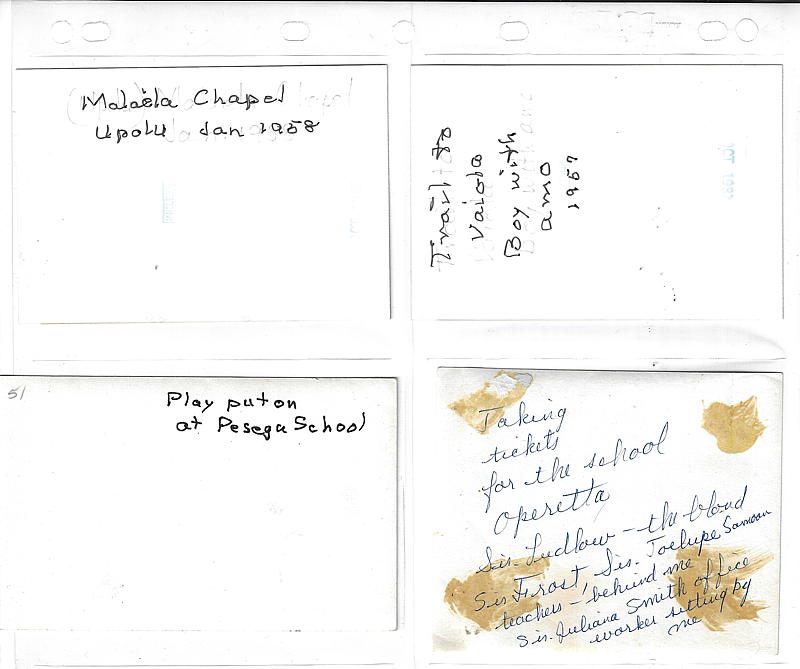 Malaela Chapel
Upolu Jan 1958
Trail to
Vaiola
Boy with
amo
1957
51
Play put on
at Pesega School
Taking
tickets
for the school
Operetta
Sis. Ludlow - the blond
Sis Frost, Sis. Toelupe Samoan
teachers - behind me
Sis. Juliana Smith office
worker sitting by
me